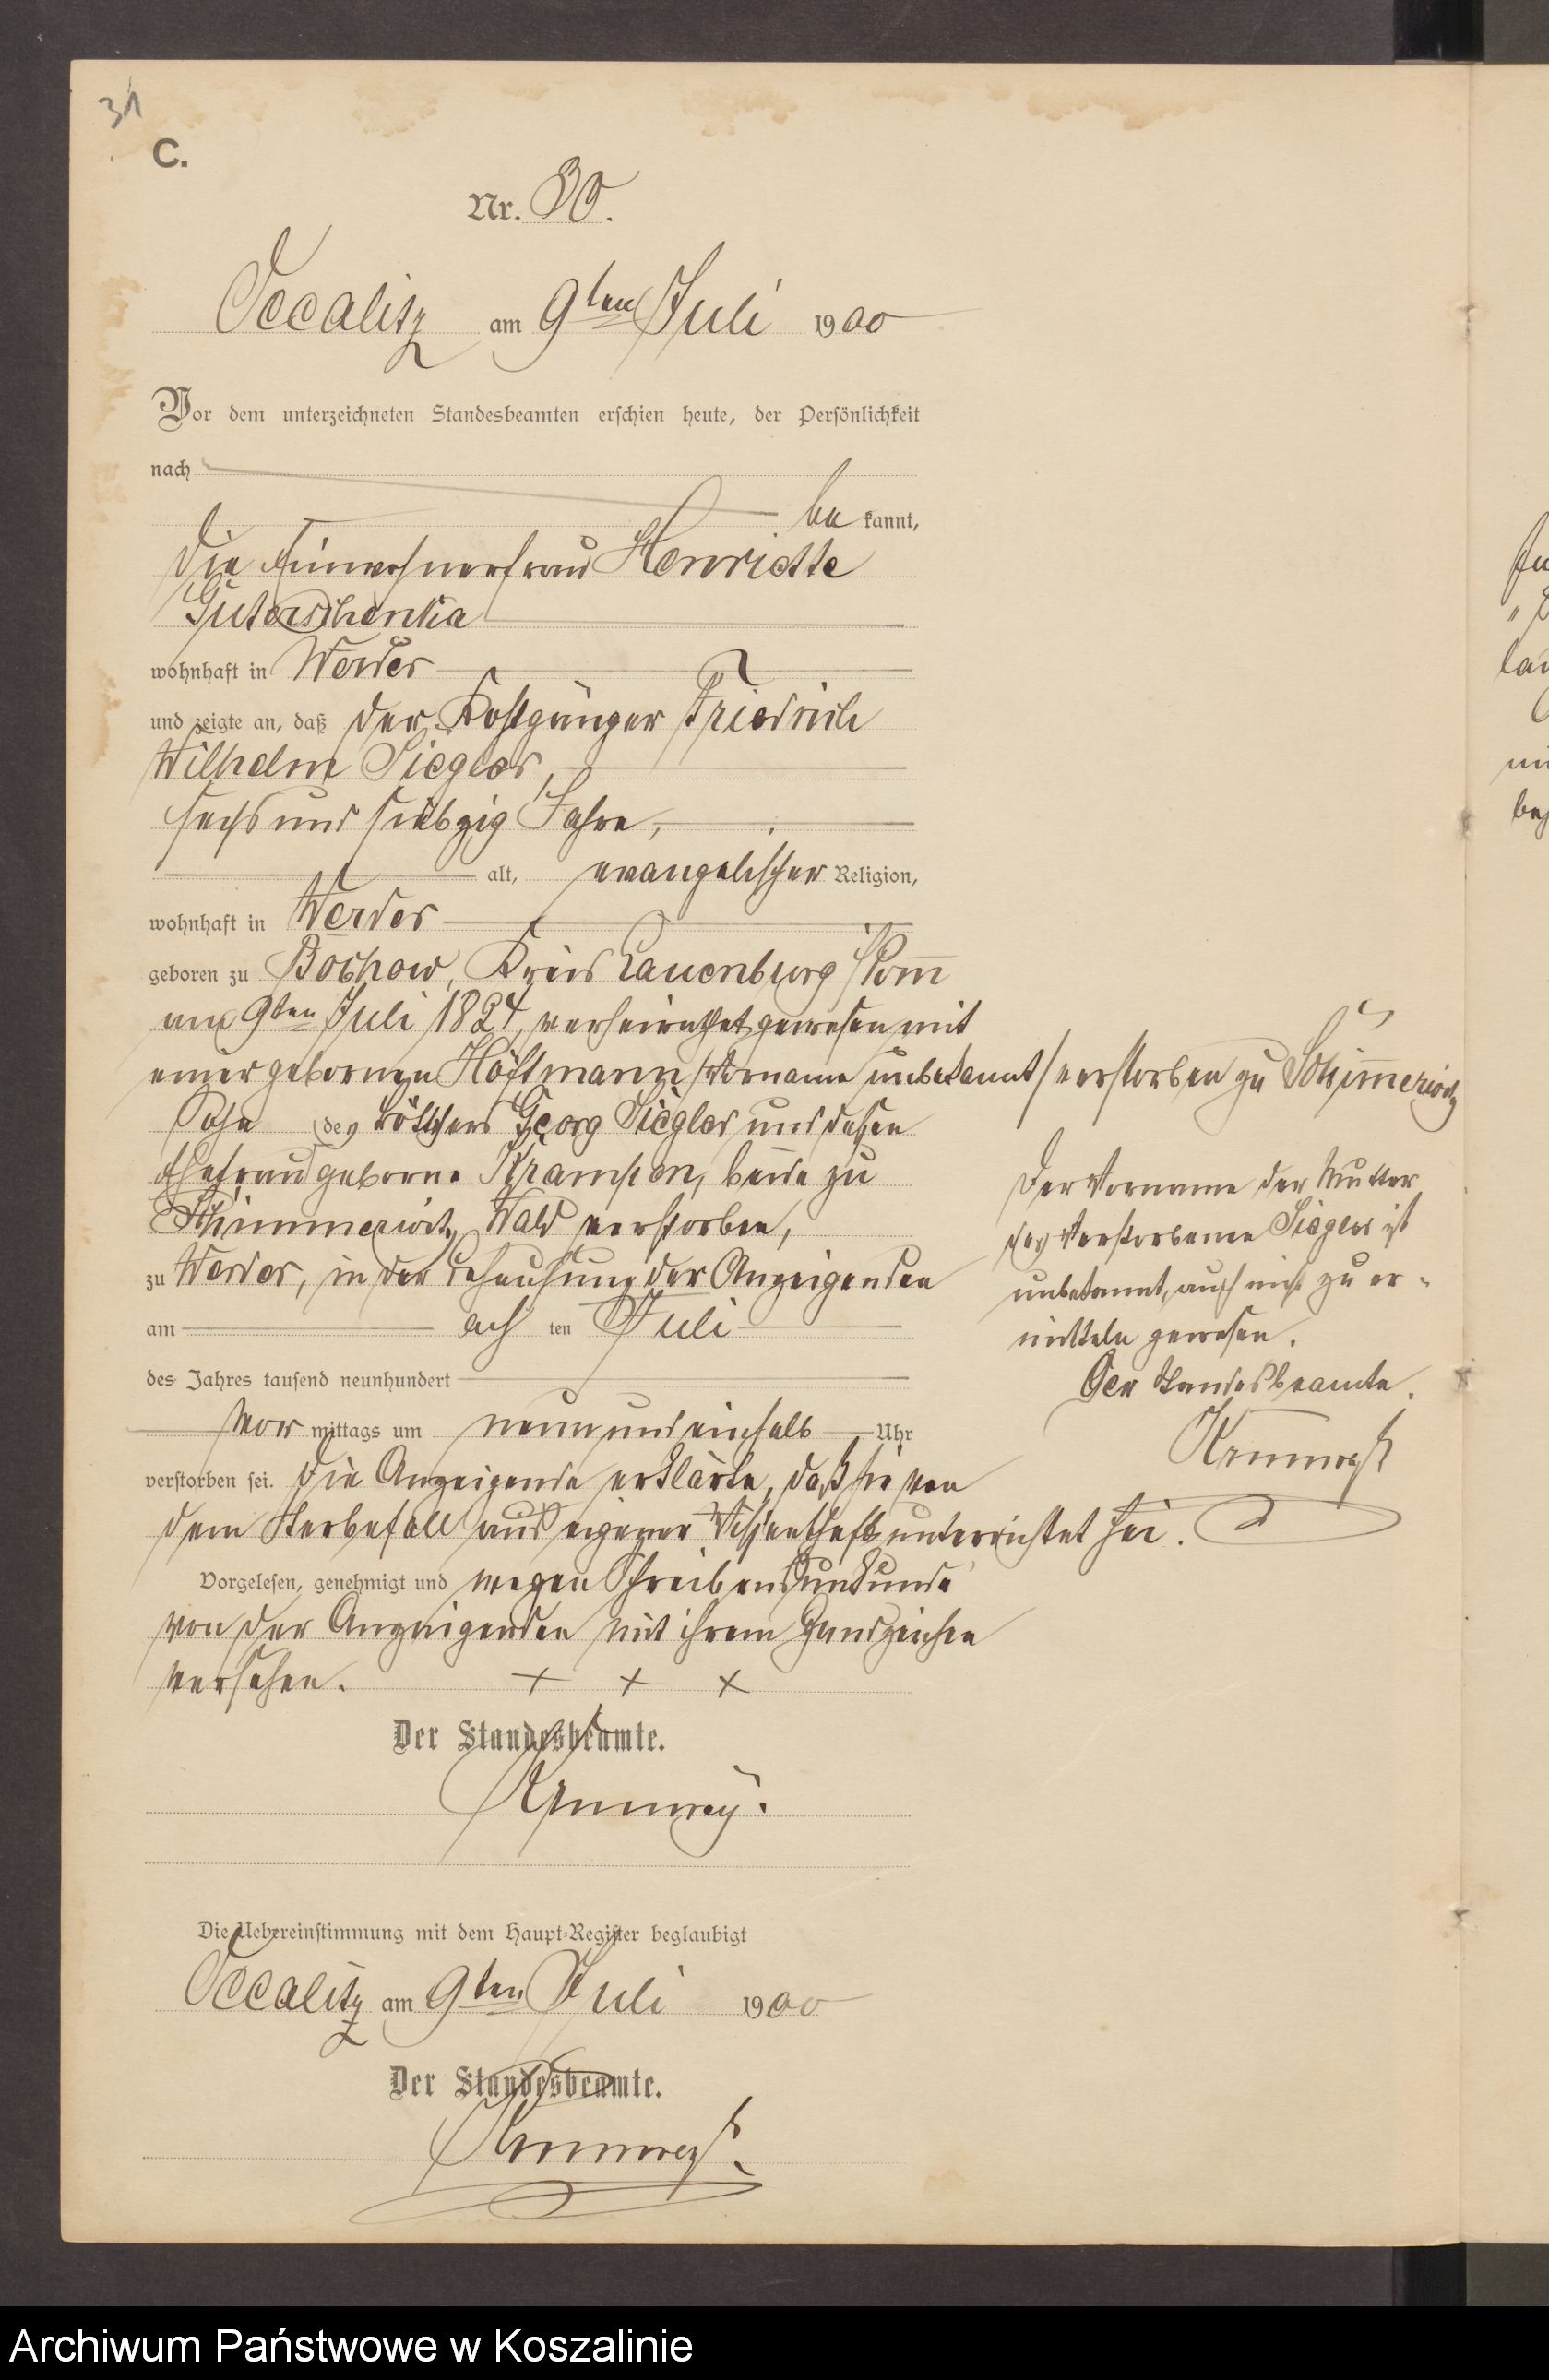 31
C.
Nr. 30.
Occalitz am 9ten Juli 1900
Vor dem unterzeichneten Standesbeamten erschien heute, der Persönlichkeit
nach
be kannt,
die Einwohnerfrau Henriette
wohnhaft in Werder
und zeigte an, daß der Kostgänger Friedrich
Wilhelm Siegler,
sechs und siebzig Jahre,
alt, evangelischer Religion,
wohnhaft in Werder
geboren zu Bochow, Kreis Lauenburg /Pom̅
am 9ten Juli 1824, verheirathet gewesen mit
einer gebornen Höftmann /Vorname unbekannt/ verstorben zu
Sohn des Böttchers Georg Siegler und dessen
Ehefrau geborne Krampon, beide zu
Wald verstorben,
zu Werder, in der Behausung der Anzeigenden
am acht ten Juli
des Jahres tausend neunhundert
Vor mittags um neun und einhalb Uhr
verstorben sei. Die Anzeigende erklärte, daß sie von
dem Sterbefall aus eigener Wissenschaft unterrichtet sei.
Vorgelesen, genehmigt und wegen Schreibensunkunde
von der Anzeigenden mit ihrem Handzeichen
versehen. + + +
Der Standesbeamte.
Die Uebereinstimmung mit dem Haupt-Register beglaubigt
Occalitz am 9ten Juli 1900
Der Standesbeamte.
Der Vorname der Mutter
des Verstorbenen Siegler ist
unbekannt, auch nicht zu er-
mitteln gewesen.
Der Standesbeamte.
Archiwum Państwowe w Koszalinie